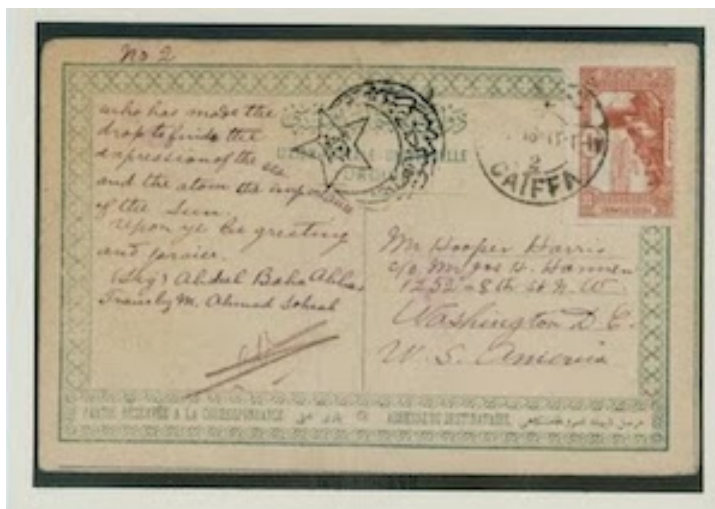 No 2
who has made the
drop to find the
expression of the sea
and the atom the importance
of the Sun.
Upon ye be greeting
and praise.
(Sig) Abdul Baha Abbas
Trans by M. Ahmad Sohrab
CAIFFA
Mr Hooper Harris
c/o Mr Jos H. Hannen
1252 - 8th St N. W.
Washington D. C.
U. S. America
PARTIE RÉSERVÉE A LA CORRESPONDANCE
ADRESSE DU DESTINATAIRE